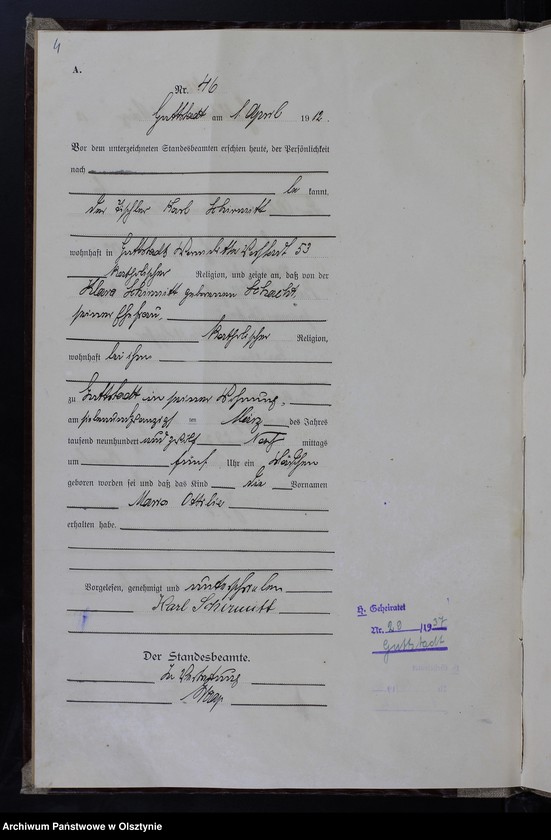 4
A.
Nr. 46
Guttstadt am 1 April 1912.
Vor dem unterzeichneten Standesbeamten erschien heute, der Persönlichkeit
nach
be kannt.
der Tischler Karl Schirmitt
wohnhaft in Guttstadt 53
katholischer Religion, und zeigte an, daß von der
Klara Schirmitt geborenen Schacht,
seiner Ehefrau,
katholischer Religion,
wohnhaft bei ihm
zu Guttstadt in seiner Wohnung,
am siebenundzwanzigsten März des Jahres
tausend neunhundert und zwölf Nach mittags
um fünf Uhr ein Mädchen
geboren worden sei und daß das Kind die Vornamen
Maria Ottilie
erhalten habe.
Vorgelesen, genehmigt und unterschrieben
Karl Schirmitt
H. Geheiratet
Nr. 28 /1937
Guttstadt
Der Standesbeamte.
In Vertretung
Archiwum Państwowe w Olsztynie